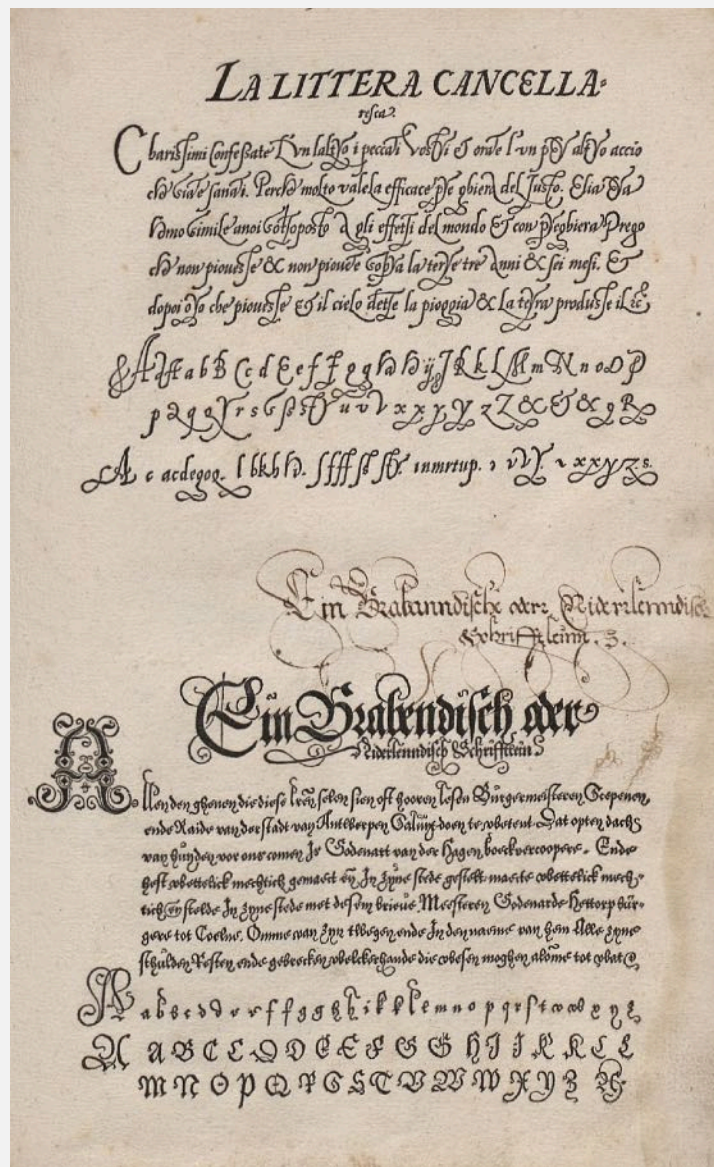 LA LITTERA CANCELLA-
resca.
Charissimi Confessate l'un laltro i peccati vostri & orate l'un per altro accio
che siate sanati. Perche molto vale la efficace preghiera del Justo. Elia era
homo simile a noi sottoposto a gli effetti del mondo & con preghiera Prego
che non piovesse & non piovete sopra la terre tre anni & sei mesi. &
dopoi oro che piovesse & il cielo dette la pioggia & La terra produsse il
a b B C c d E e f f g g h h ij J K k L l M m N n o O P
p q q r s s u v x x y y z Z & & &
A c acdegoq. l bkhh. ſſff inmrtup. x x y z s.
Ein Brabanndische oder Niderlenndisch
Schrifftleinn. 3.
Ein Brabendisch oder
Niderlenndisch Schrifftlein
Allen den ghenen die diese selen sien oft hooren lesen Burgermeisteren Scepenen,
ende Raide van der stadt van Antwerpen Saluyt doen te wetent. Dat op ten dach
van huyden vor ons comen Is Godenart van der Hagen boeckvercoopere. Ende
heft wettelick mechtich gemaect en In zyne stede gestelt maecte wettelick mech-
tich en stelde In zyne stede met desem brieue Meesteren Godenarde Hettorp bur-
gere tot Coelne. Omme van zyn twegen ende In den naeme van hem Alle zyne
schulden Resten ende gebrecken welckerhande die wesen moghen alomme tot wat
a b c d e f f g g h i k k l e m n o p q r s t w x y z
A A B C C D D E E F G G H I J K K L L
M N O P Q R S S T V W W X Y Z